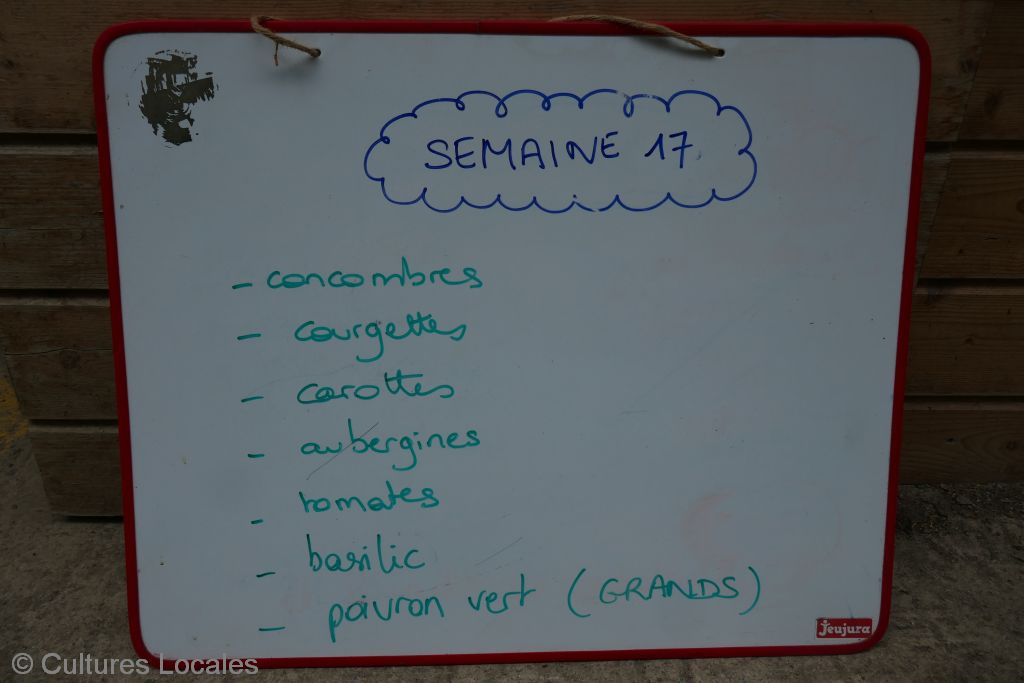 SEMAINE 17
- concombres
- courgettes
- carottes
- aubergines
- tomates
- basilic
- poivron vert (GRANDS)
Jeujura
© Cultures Locales